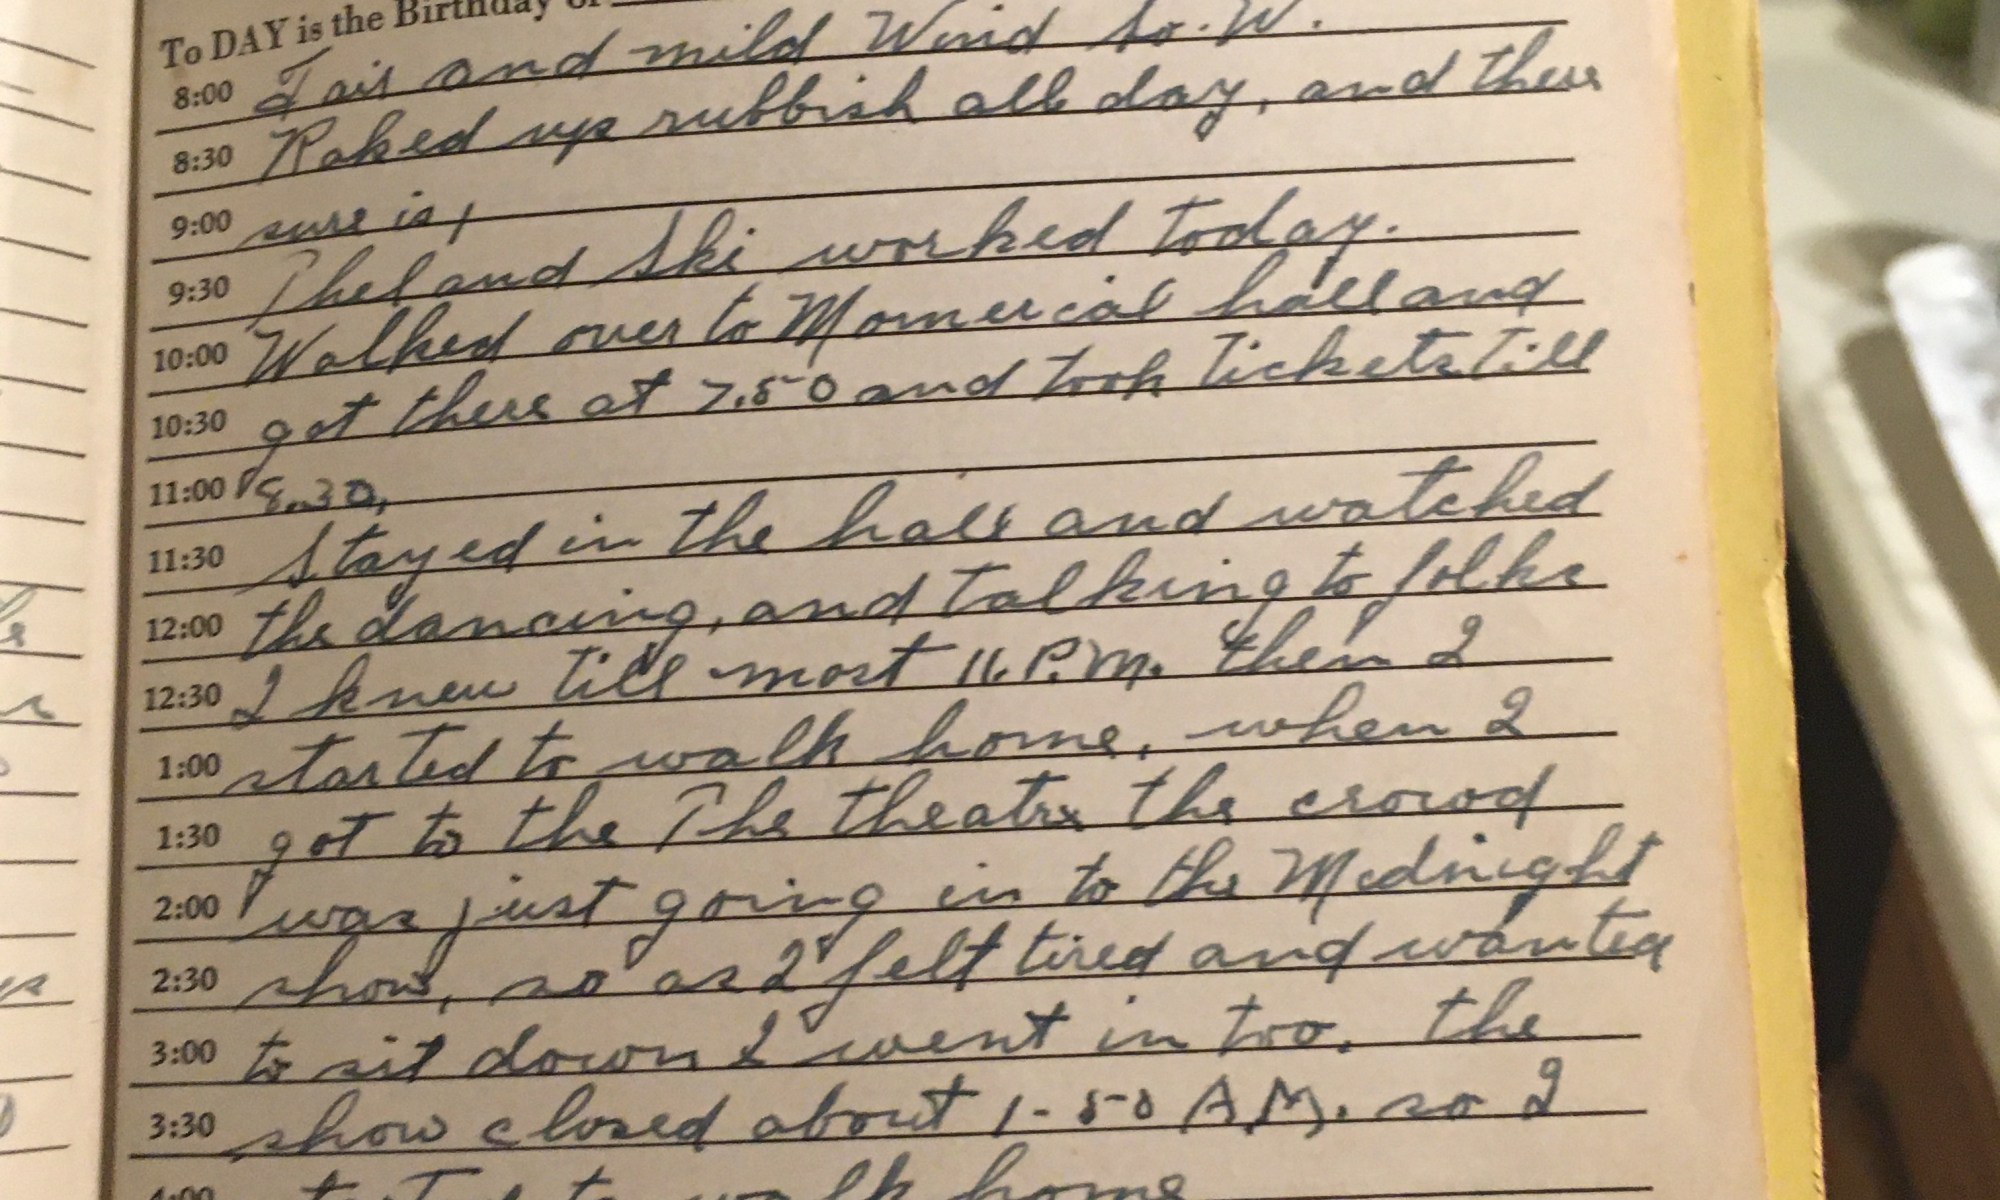 To DAY is the Birthday of
8:00 Fair and mild Wind So. W.
8:30 Raked up rubbish all day, and there
9:00 sure is,
9:30 Thel and Ski worked today.
10:00 Walked over to Momercial hall and
10:30 got there at 7.50 and took tickets till
11:00 8.30,
11:30 Stayed in the hall and watched
12:00 the dancing, and talking to folks
12:30 I knew till most 11. P.M. then I
1:00 started to walk home, when I
1:30 got to the The theatre the crowd
2:00 was just going in to the Midnight
2:30 show, so as I felt tired and wanted
3:00 to sit down I went in too. the
3:30 show closed about 1-50 A.M. so I
4:00 started to walk home